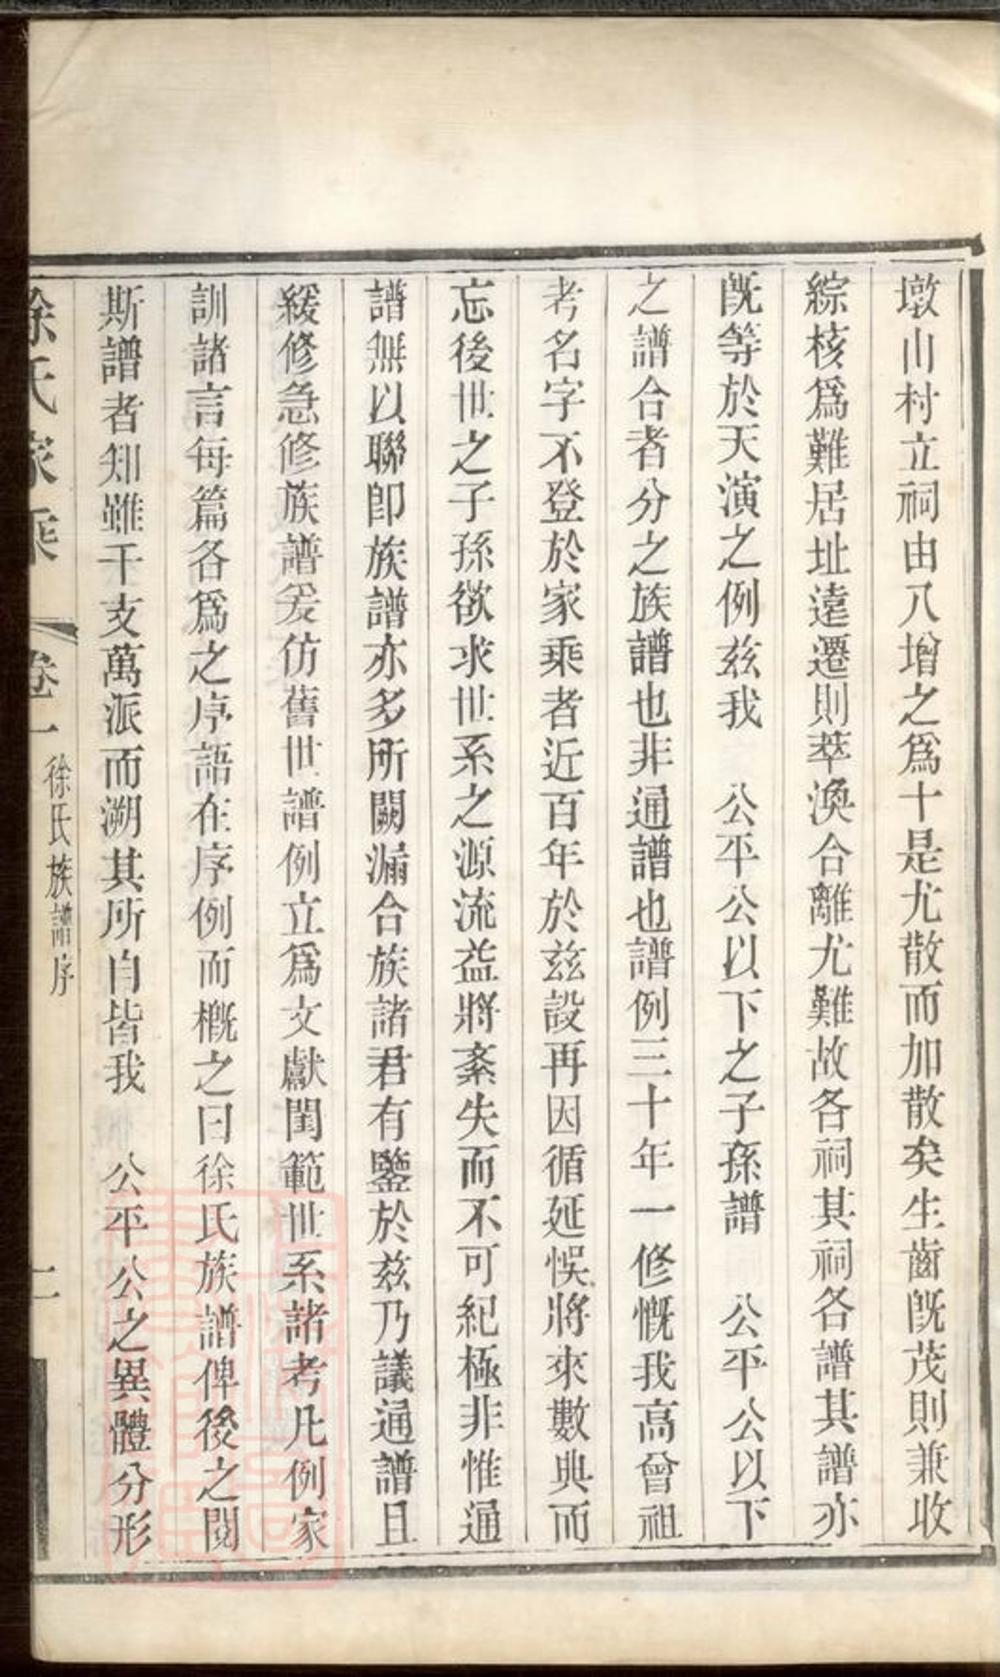 墩山村立祠由八增之爲十是尤散而加散矣生齒旣茂則兼收
綜核爲難居址遠遷則萃渙合離尤難故各祠其祠各譜其譜亦
旣等於天演之例玆我　公平公以下之子孫譜　公平公以下
之譜合者分之族譜也非通譜也譜例三十年一修慨我高曾祖
考名字不登於家乘者近百年於玆設再因循延悞將來數典而
忘後世之子孫欲求世系之源流益將紊失而不可紀極非惟通
譜無以聯卽族譜亦多所闕漏合族諸君有鑒於玆乃議通譜且
緩修急修族譜爰仿舊世譜例立爲文獻閨範世系諸考凡例家
訓諸言每篇各爲之序語在序例而槪之曰徐氏族譜俾後之閱
斯譜者知雖千支萬派而溯其所自皆我　公平公之異體分形
徐氏家乘　卷一　徐氏族譜序　二